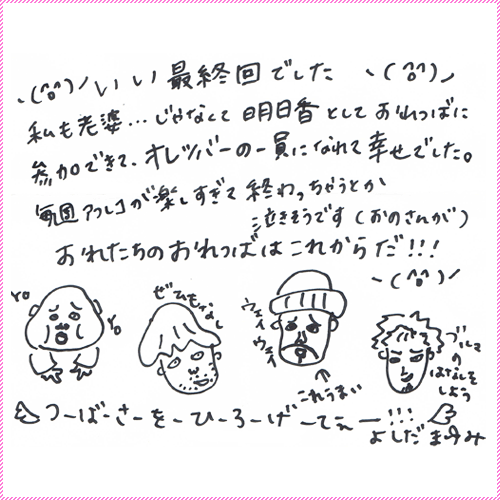 ヽ(^o^)ノいい最終回でした ヽ(^o^)ノ
私も老婆…じゃなくて明日香としておれつばに
参加できて、オレッバーの一員になれて幸せでした。
毎週アフレコが楽しすぎて終わっちゃうとか
泣きそうです(おのさんが)
おれたちのおれつばはこれからだ!!!
ヽ(^o^)ノ
YO
YO
ぜひもなし
ウェイ
ウェイ
これうまい
ブルマ
の
はなしを
しよう
つーばーさーをーひーろーげーてぇー!!!
よしだ まゆみ